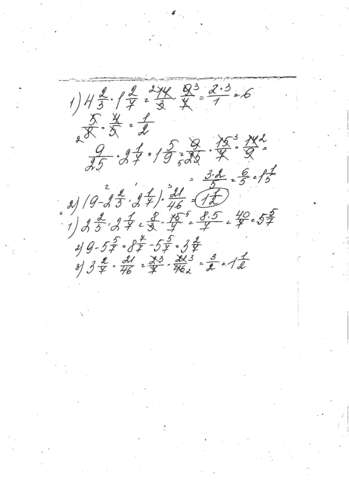 1) 4 2/3 · 1 2/7 = 14/3 · 9/7 = 2·3/1 = 6
5/8 · 4/5 = 1/2
9/25 · 2 1/7 · 1 5/9 = 9/25 · 15/7 · 14/9 =
= 3·2/5 = 6/5 = 1 1/5
2) (9 - 2 2/3 · 2 1/7) · 21/46 = 1 1/2
1) 2 2/3 · 2 1/7 = 8/3 · 15/7 = 8·5/7 = 40/7 = 5 5/7
2) 9 - 5 5/7 = 8 7/7 - 5 5/7 = 3 2/7
3) 3 2/7 · 21/46 = 23/7 · 21/46 = 3/2 = 1 1/2